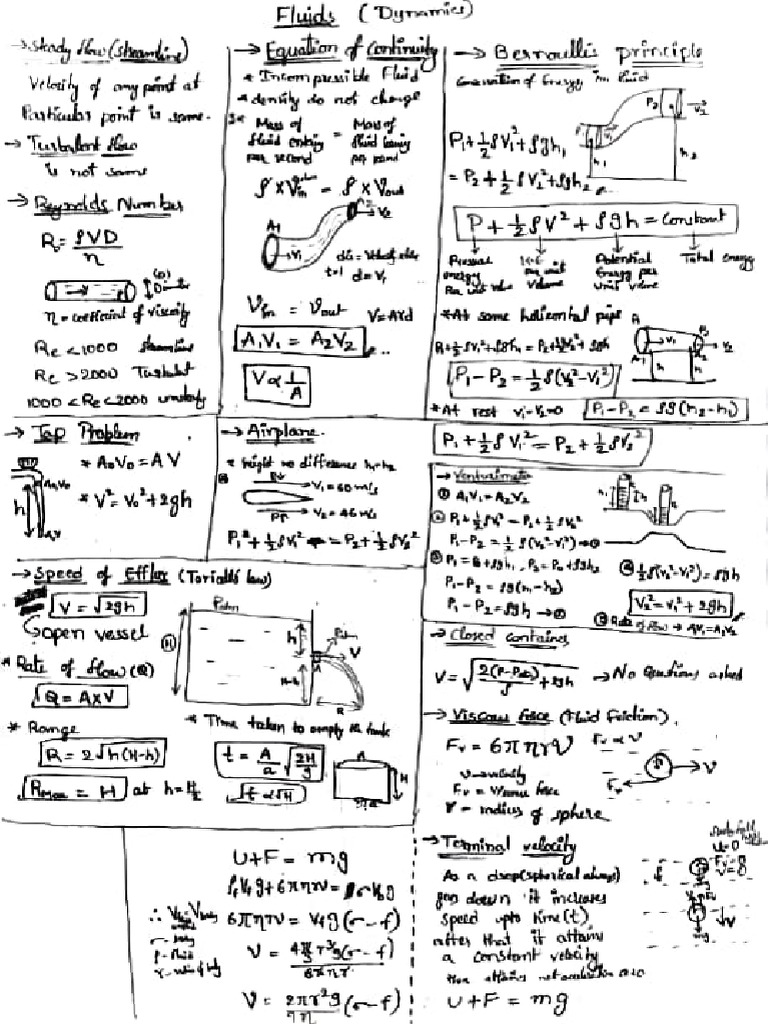 Fluids (Dynamics)
→ Steady flow (streamline)
Velocity of any point at
Particular point is same.
→ Turbulent flow
is not same
→ Reynolds Number
Re = ρVD
η
(D)
η = coefficient of viscosity
Re < 1000 Streamline
Re > 2000 Turbulent
1000 < Re < 2000 unsteady
→ Equation of Continuity
* Incompressible Fluid
* density do not change
Mass of fluid entring per second = Mass of fluid leaving per second
ρ × Vin = ρ × Vout
A1
V1
V2
Vin = Vout
A1V1 = A2V2
V ∝ 1/A
→ Bernoulli's principle
Conservation of Energy in fluid
P1 + ½ρV1² + ρgh1
= P2 + ½ρV2² + ρgh2
P2
V2
h1
h2
P + ½ρV² + ρgh = Constant
Pressure energy Per unit volume
K.E Per unit Volume
Potential Energy per Unit volume
Total energy
* At same horizontal pipe
P1 + ½ρV1² + ρgh = P2 + ½ρV2² + ρgh
P1 - P2 = ½ρ(V2² - V1²)
* At rest V1 = V2 = 0
P1 - P2 = ρg(h2 - h1)
P1 + ½ρV1² = P2 + ½ρV2²
→ Tap Problem
* A0V0 = AV
* V² = V0² + 2gh
A0V0
h
AV
→ Airplane
* height no difference h1 = h2
V1 = 60 m/s
V2 = 45 m/s
P1² + ½ρV1² = P2 + ½ρV2²
→ Venturimeter
① A1V1 = A2V2
② P1 + ½ρV1² = P2 + ½ρV2²
P1 - P2 = ½ρ(V2² - V1²) → ①
③ P1 = P0 + ρgh1, P2 = P0 + ρgh2
P1 - P2 = ρg(h1 - h2)
P1 - P2 = ρgh → ②
④ ½ρ(V2² - V1²) = ρgh
V2² = V1² + 2gh
⑤ Rate of flow → A1V1 = A2V2
→ Speed of Efflux (Toricalli's law)
V = √2gh
open vessel
* Rate of flow (Q)
Q = A×V
* Range
R = 2√h(H-h)
Rmax = H at h = H/2
Patm
H
h
H-h
V
R
* Time taken to empty the tank
t = A/a √2H/g
t ∝ √H
A
H
→ Closed container
V = √2(P-Patm)/ρ + 2gh → No Questions asked
→ Viscous force (Fluid friction)
Fv = 6πηrv
Fv ∝ V
v → velocity
Fv = Viscous force
r = radius of sphere
V
Fv
→ Terminal velocity
As a drop (spherical always)
goes down it increases
speed upto time (t)
after that it attains
a constant velocity
then attains net acceleration a=0
U + F = mg
U=0
mg
U + F = mg
6πηrv = Vbg(σ - ρ)
V = 4/3πr³g(σ - ρ)
6πηr
V = 2r²g(σ - ρ)